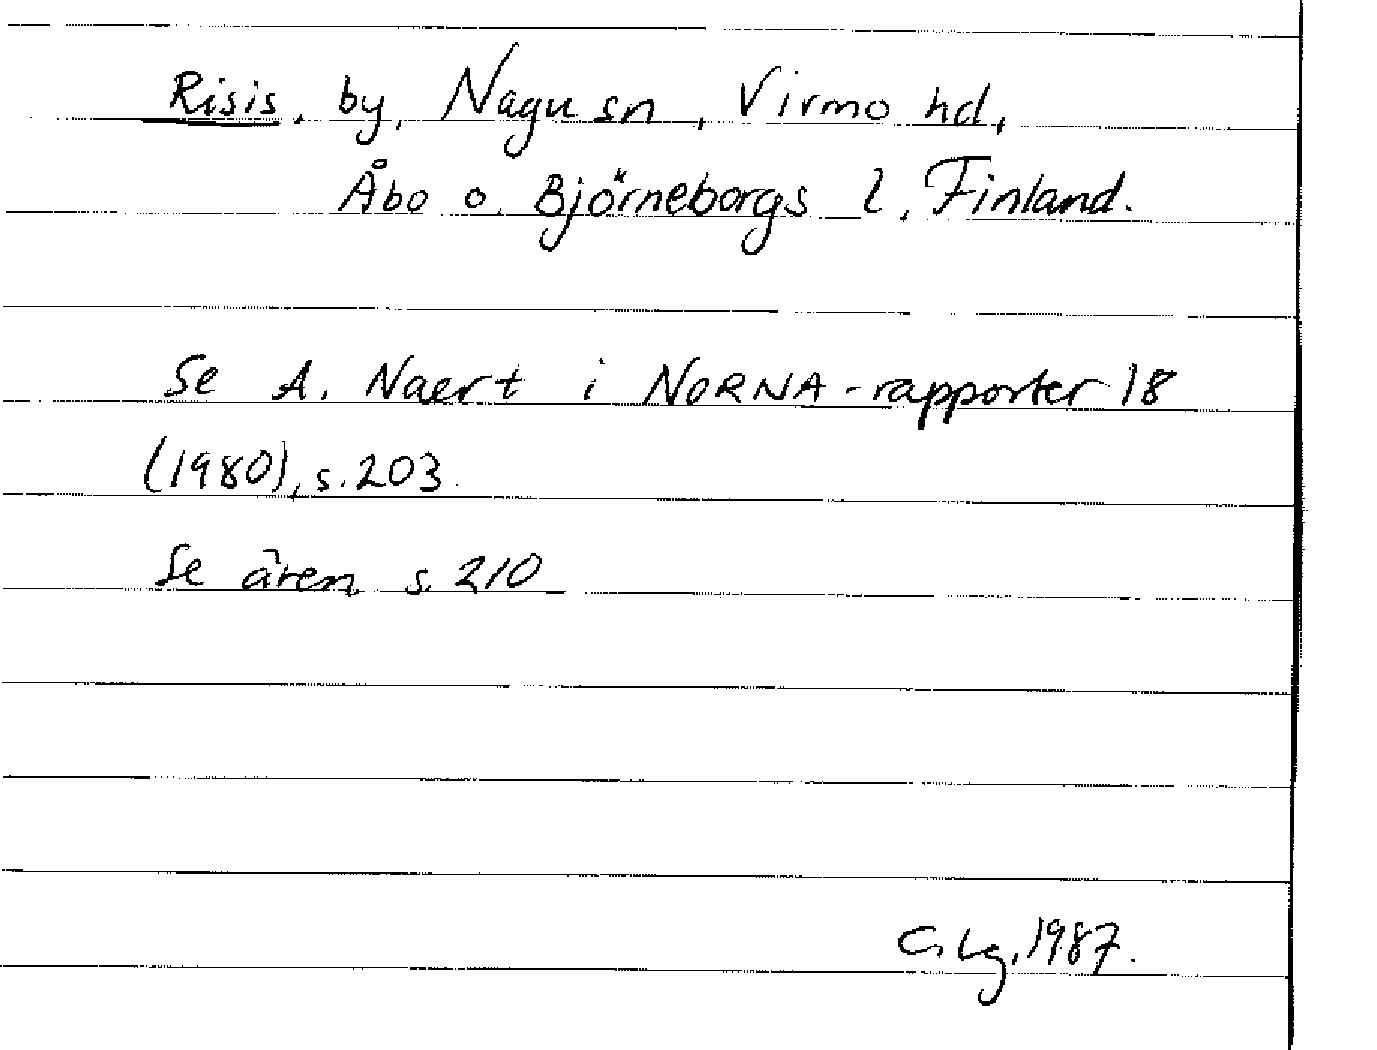 Risis, by, Nagu sn, Virmo hd,
Åbo o. Björneborgs l, Finland.
Se A. Naert i NORNA-rapporter 18
(1980), s. 203.
Se även s. 210
C. Lg, 1987.